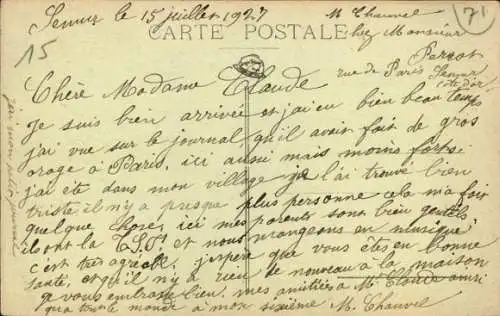 Semur le 15 juillet 1927
M. Chauvel
chez Monsieur
Perrot
rue de Paris Semur
côte d'or
CARTE POSTALE
15
71
Chère Madame Claude
Je suis bien arrivée et j'ai eu bien beau temps
j'ai vue sur le journal qu'il avait fait de gros
orage à Paris, ici aussi mais moins forts
j'ai été dans mon village je l'ai trouvé bien
triste il n'y a presque plus personne cela m'a fait
quelque chose, ici mes parents sont bien gentils
ils ont la T.S.F. et nous mangeons en musique
c'est très agréable, j'espère que vous êtes en bonne
santé, et qu'il n'y a rien de nouveau à la maison
je vous embrasse bien, mes amitiées à M. Claude ainsi
qu'a toute monde à mon sixième M. Chauvel